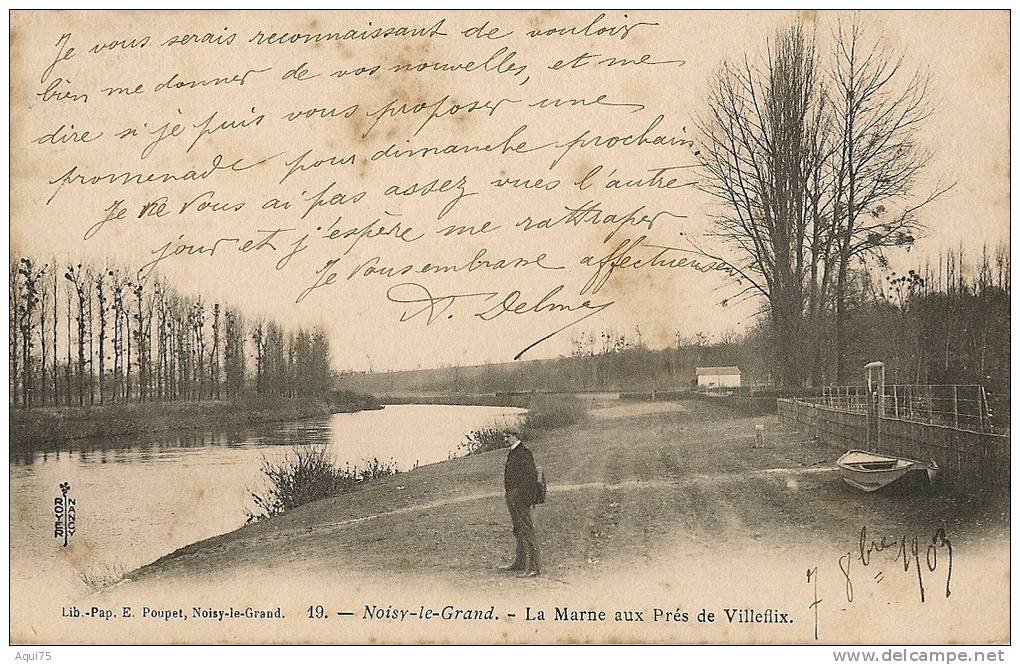 Je vous serais reconnaissant de vouloir
bien me donner de vos nouvelles, et me
dire si je puis vous proposer une
promenade pour dimanche prochain
Je ne vous ai pas assez vues l'autre
jour et j'espère me rattraper
Je vous embrasse affectueusem
A. Delme
7 8bre 1903
ROYER
NANCY
Lib.-Pap. E. Poupet, Noisy-le-Grand. 19. — Noisy-le-Grand. - La Marne aux Prés de Villeflix.
Aqui75
www.delcampe.net